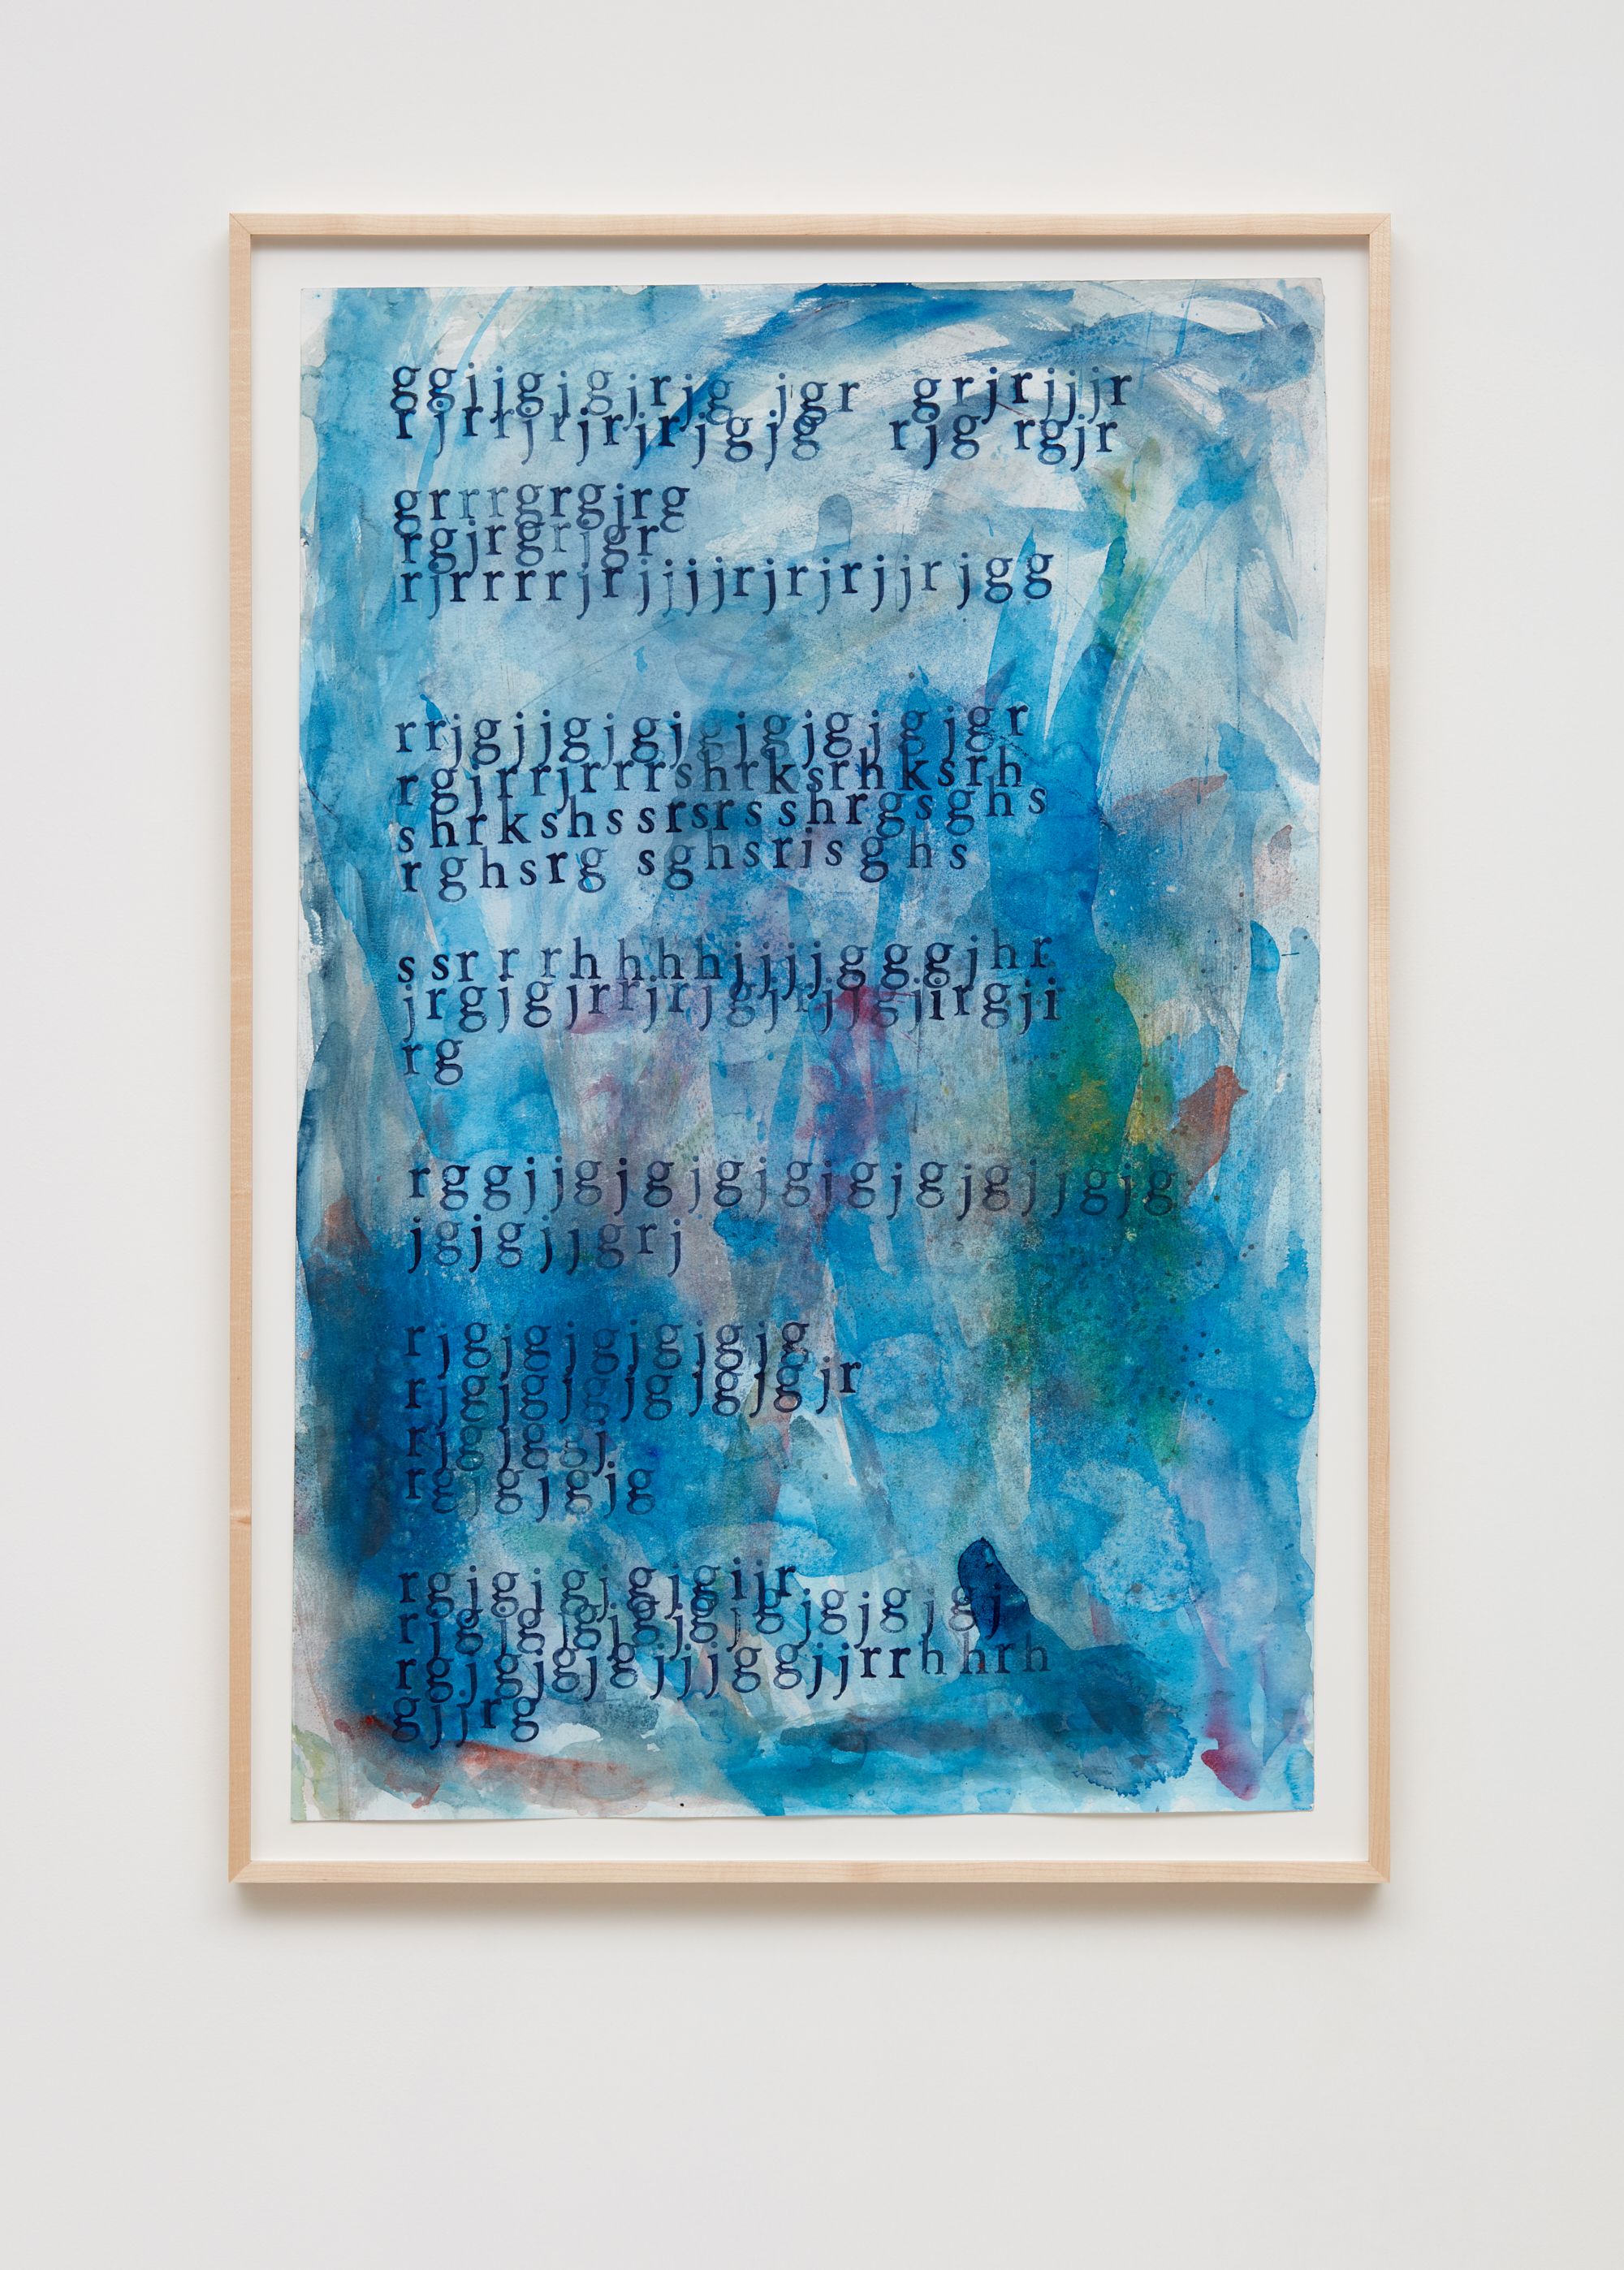 ggjjgjgjrjg jgr grjrjjjr
rjrrjrjrjrjgjg rjg rgjr
grrrgrgjrg
rgjrgrjgr
rjrrrrjrjjjjrjrjrjjrjgg
rrjgjjgjgjgjgjgjgjgr
rgjrrjrrrshrksrhksrh
shrkshssrsrsshrgsghs
rghsrg sghsrisghs
ssrrrhhhhjjjjgggjhr
jrgjgjrrjrjgjrjjgjirgji
rg
rggjjgjgjgjgjgjgjgjjgjg
jgjgjjgrj
rjgjgjgjgjgjg
rjgjgjgjgjgjgjr
rjgjggj
rgjgjgjg
rgjgjgjgjgijr
rgjgjgjgjjjggjjrrhhrh
gjjrg